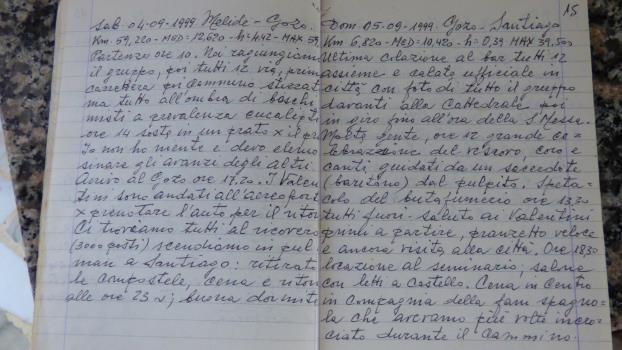 Sab 04-09-1999 Melide - Gozo.
Km 59,220 - MED = 12,620 - h = 4,42 - MAX 59,
Partenza ore 10. Noi raggiungiamo
il gruppo, poi tutti 12 via, prima
carrettera poi cammino sterrat
ma tutto all'ombra di boschi
misti a prevalenza eucalipti
ore 14 sosta in un prato x il pr
Io non ho niente e devo elemo
sinare gli avanzi degli altri
Arrivo al Gozo ore 17.20. I Valen
tini sono andati all'aereoport
x prenotare l'auto per il ritor
Ci troviamo tutti al ricovero
(3000 posti) scendiamo in pul
man a Santiago: ritirato
le compostele, cena e ritor
alle ore 23 ; buona dormita
15
Dom 05-09-1999. Gozo - Santiago
Km 6,820 - MED = 10,420 - h = 0,39 MAX 39,500
Ultima colazione al bar tutti 12
assieme e calata ufficiale in
città con foto di tutto il gruppo
davanti alla Cattedrale poi
in giro fino all'ora della S. Messa.
Molta gente, ore 12 grande ce-
lebrazione del vescovo, coro e
canti guidati da un sacerdote
(baritono) dal pulpito. Speta-
colo del butafumeiro ore 13,30
tutti fuori - saluto ai Valentini
primi a partire, pranzetto veloce
e ancora visita alla città. Ore 18,30
locazione al seminario, salone
con letti a castello. Cena in centro
in compagnia della fam spagno-
la che avevamo più volte incro-
ciato durante il Cammino.